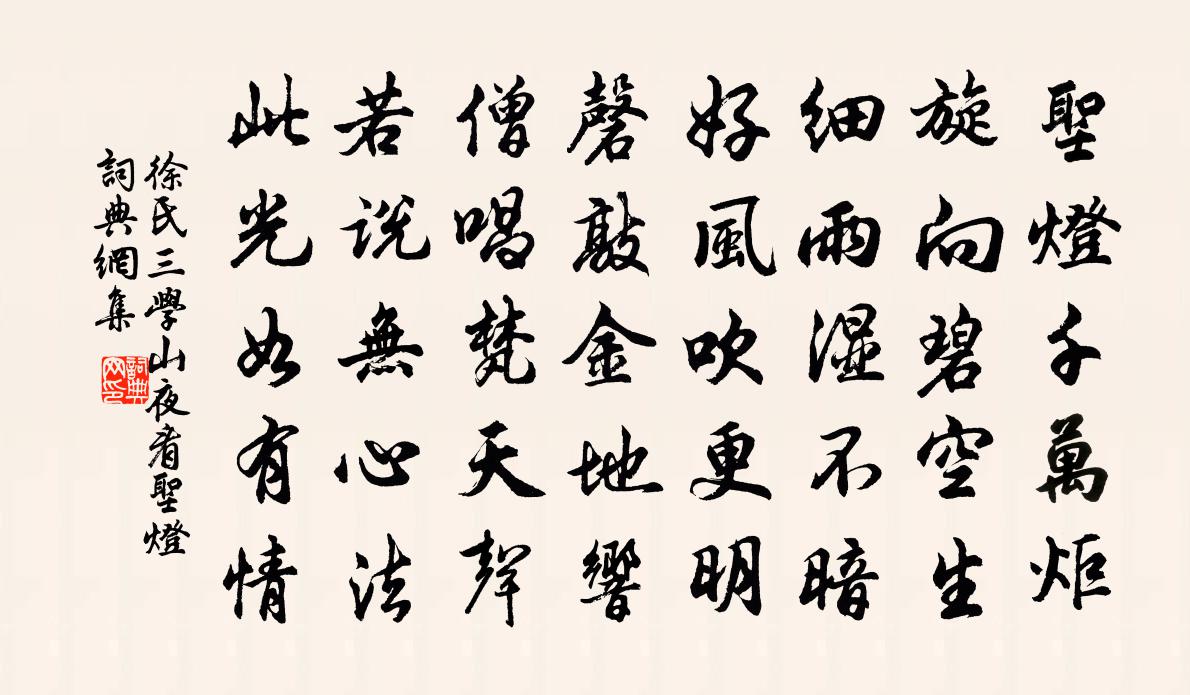 聖燈千萬炬
旋向碧空生
細雨濕不暗
好風吹更明
磬敲金地響
僧唱梵天聲
若說無心法
此光如有情
徐氏三學山夜看聖燈
詞典網集
詞典网印